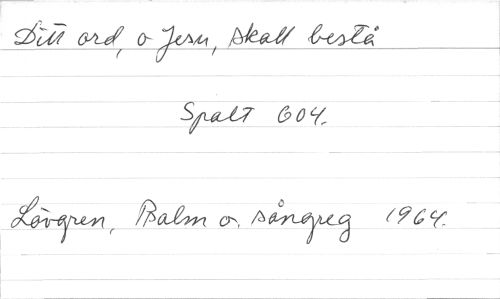 Ditt ord, o Jesu, skall bestå
Spalt 604.
Lövgren, Psalm o. sångreg 1964.